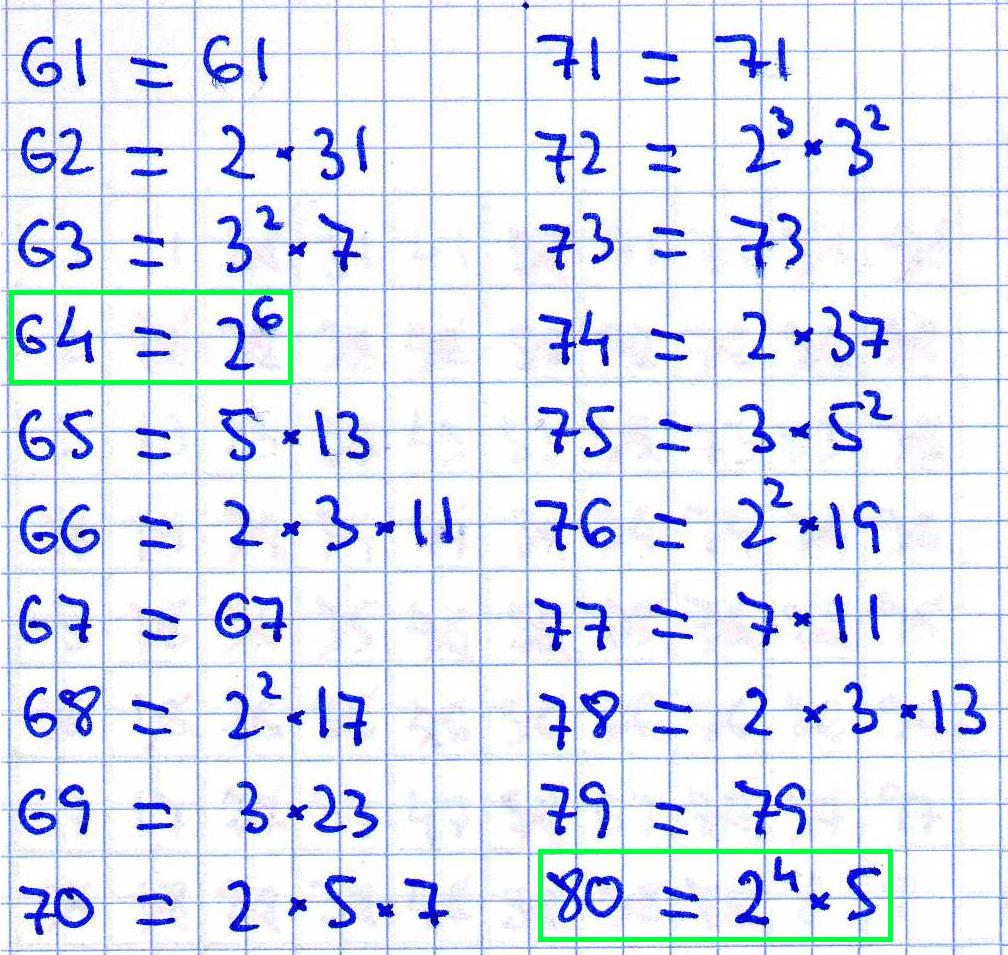 61 = 61
62 = 2 × 31
63 = 3² × 7
64 = 2⁶
65 = 5 × 13
66 = 2 × 3 × 11
67 = 67
68 = 2² × 17
69 = 3 × 23
70 = 2 × 5 × 7
71 = 71
72 = 2³ × 3²
73 = 73
74 = 2 × 37
75 = 3 × 5²
76 = 2² × 19
77 = 7 × 11
78 = 2 × 3 × 13
79 = 79
80 = 2⁴ × 5